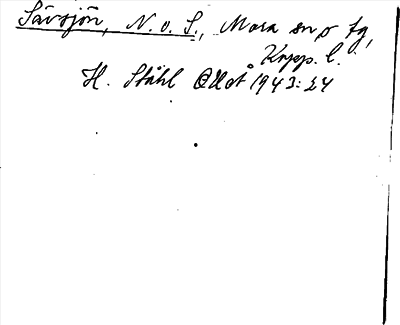 Sävsjön, N. o. S., Mora sn o tg,
Kopp. l.
H. Ståhl OUoÅ 1943:24